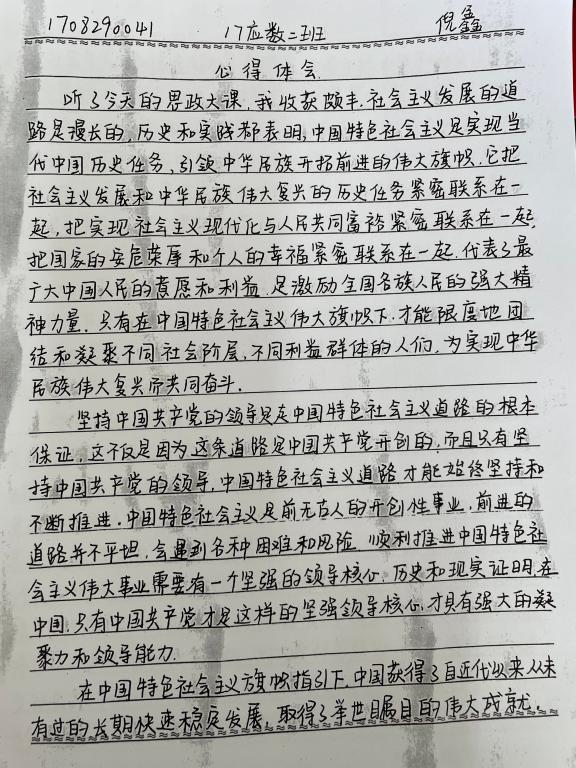 1708290041 17应数二班 倪鑫
心得体会
听了今天的思政大课，我收获颇丰，社会主义发展的道
路是漫长的，历史和实践都表明，中国特色社会主义是实现当
代中国历史任务，引领中华民族开拓前进的伟大旗帜，它把
社会主义发展和中华民族伟大复兴的历史任务紧密联系在一
起，把实现社会主义现代化与人民共同富裕紧密联系在一起，
把国家的安危荣辱和个人的幸福紧密联系在一起，代表了最
广大中国人民的意愿和利益，是激励全国各族人民的强大精
神力量，只有在中国特色社会主义伟大旗帜下，才能限度地团
结和凝聚不同社会阶层，不同利益群体的人们，为实现中华
民族伟大复兴而共同奋斗．
坚持中国共产党的领导是走中国特色社会主义道路的根本
保证，这不仅是因为这条道路是中国共产党开创的，而且只有坚
持中国共产党的领导，中国特色社会主义道路才能始终坚持和
不断推进，中国特色社会主义是前无古人的开创性事业，前进的
道路并不平坦，会遇到各种困难和风险，顺利推进中国特色社
会主义伟大事业需要有一个坚强的领导核心，历史和现实证明，在
中国，只有中国共产党才是这样的坚强领导核心，才具有强大的凝
聚力和领导能力．
在中国特色社会主义旗帜指引下，中国获得了自近代以来从未
有过的长期快速稳定发展，取得了举世瞩目的伟大成就。